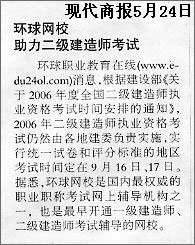 现代商报5月24日
环球网校
助力二级建造师考试
环球职业教育在线(www.e-
du24ol.com)消息,根据建设部《关
于2006年度全国二级建造师执
业资格考试时间安排的通知》,
2006年二级建造师执业资格考
试仍然由各地建委负责实施,实
行统一试卷和评分标准的地区
考试时间定在9月16日、17日。
据悉,环球网校是国内最权威的
职业职称考试网上辅导机构之
一,也是最早开通一级建造师、
二级建造师考试辅导的网校。